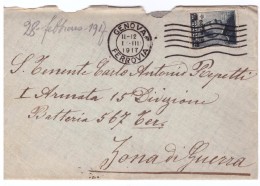 28 febbraio 1917
GENOVA
11-12
1 - III
1917
FERROVIA
S. Tenente Carlo Antonio Perpetti
I Armata 15 Divisione
Batteria 567 Ters.
Zona di Guerra